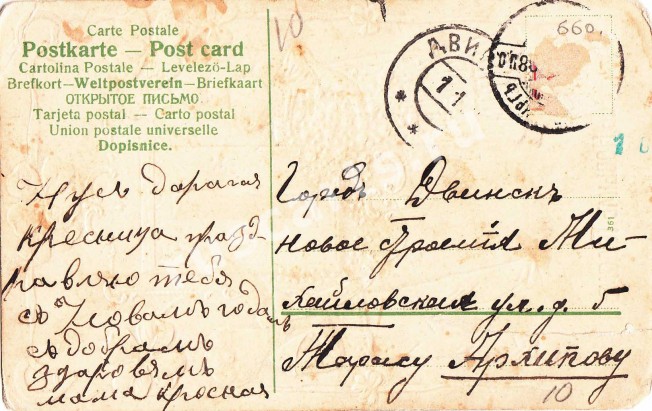 Carte Postale
Postkarte — Post card
Cartolina Postale — Levelező-Lap
Brefkort—Weltpostverein—Briefkaart
ОТКРЫТОЕ ПИСЬМО
Tarjeta postal — Carto postal
Union postale universelle
Dopisnice.
дарагая
кресница празд-
равляю тебя
съ Новамъ годамъ
съ добрамъ
здаровямъ
мама кросная
Городъ Двинскъ
новое строенія Ми-
хайловская ул. д. 5
Тарасу Архипову
10
10
660.
ДВИ
11
361